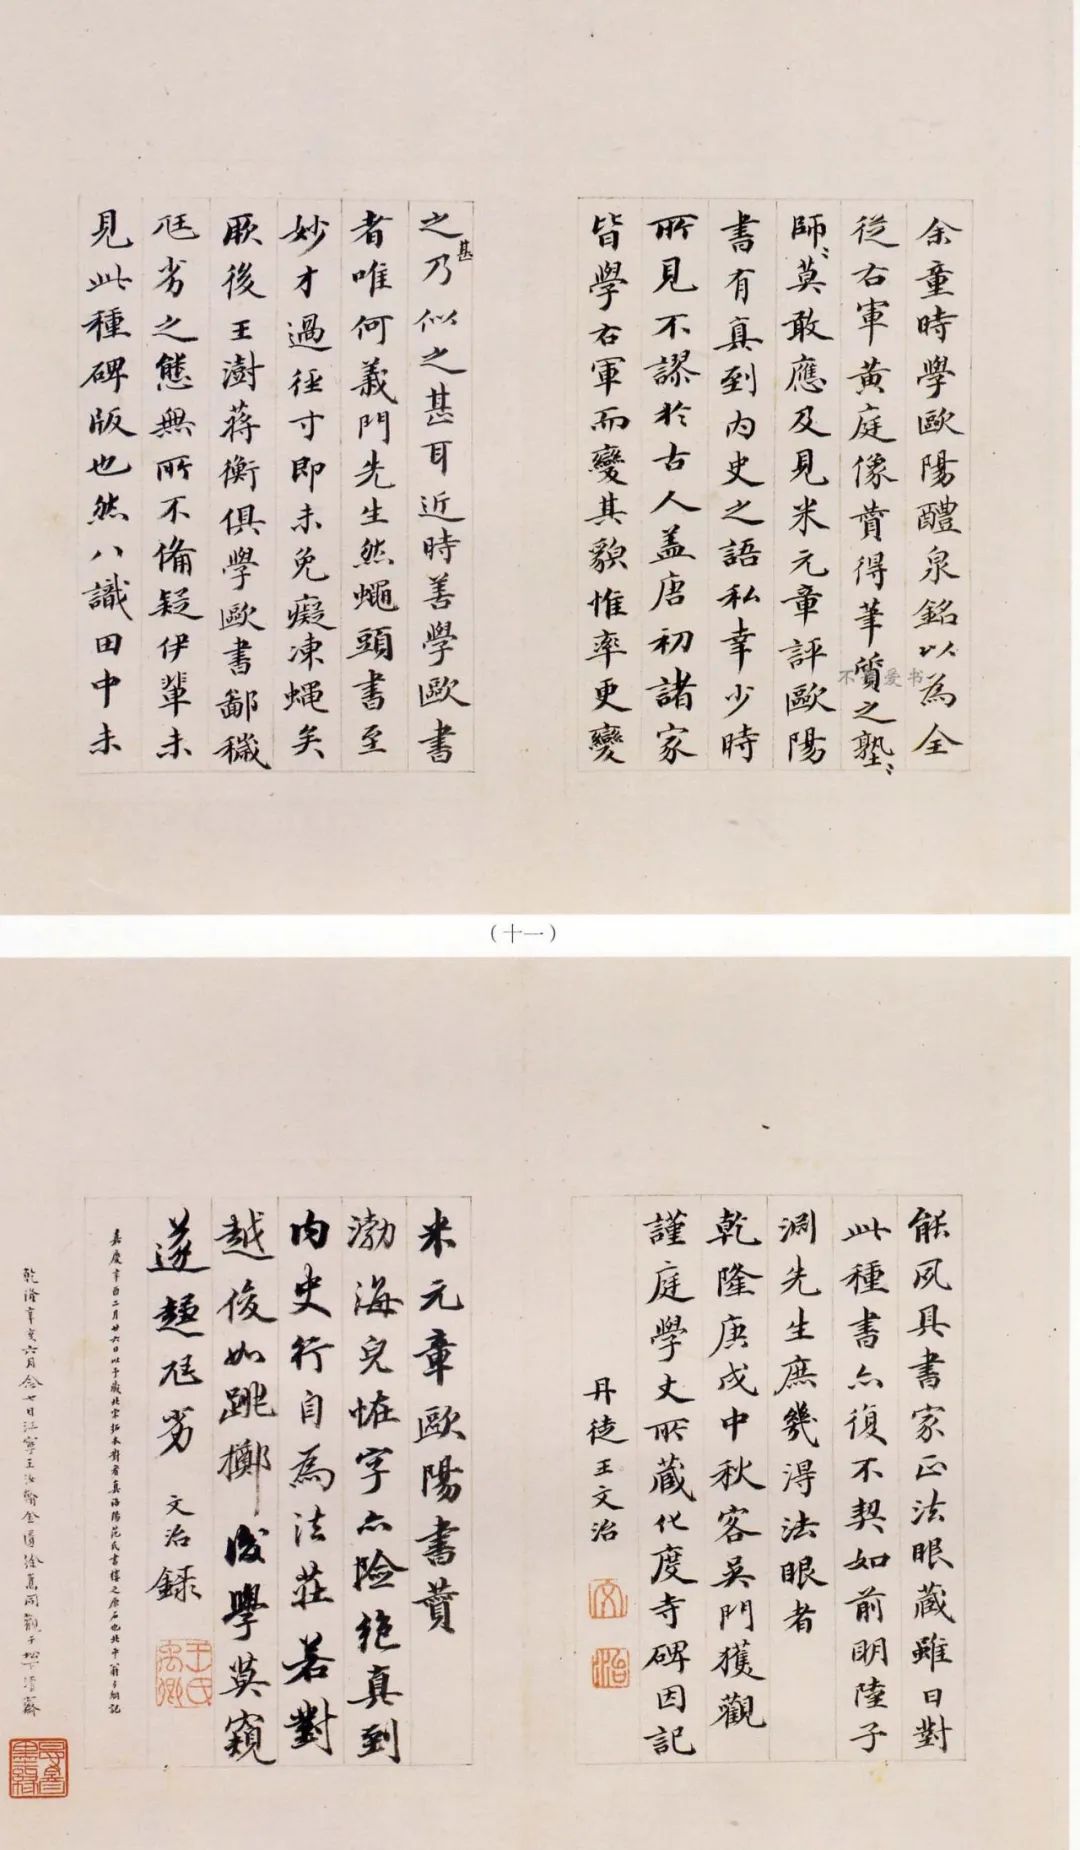 余童時學歐陽醴泉銘以為全
從右軍黃庭像賛得筆質之塾〻
師〻莫敢應及見米元章評歐陽
書有真到內史之語私幸少時
所見不謬於古人盖唐初諸家
皆學右軍而變其貌惟率更變
之甚乃似之甚耳近時善學歐書
者唯何義門先生然蠅頭書至
妙才過徑寸即未免癡凍蝇矣
厥後王澍蔣衡俱學歐書鄙穢
尫劣之態無所不備疑伊輩未
見此種碑版也然八識田中未
不 爱书
（十一）
能夙具書家正法眼藏雖日對
此種書亦復不契如前明陸子
淵先生庶幾得法眼者
乾隆庚戌中秋客吳門獲觀
謹庭學丈所藏化度寺碑因記
丹徒王文治
文
治
米元章歐陽書賛
渤海兒怪字亦險絕真到
內史行自為法莊若對
越俊如跳擲後學莫窺
遂趨尫劣 文治錄
王氏禹卿
嘉慶辛酉二月廿六日以予藏北宋拓本對看真洛陽范氏書樓之原石也北平翁方綱記
乾隆辛亥六月念七日江寧王汝翰仝 徐 同觀于松下清齋